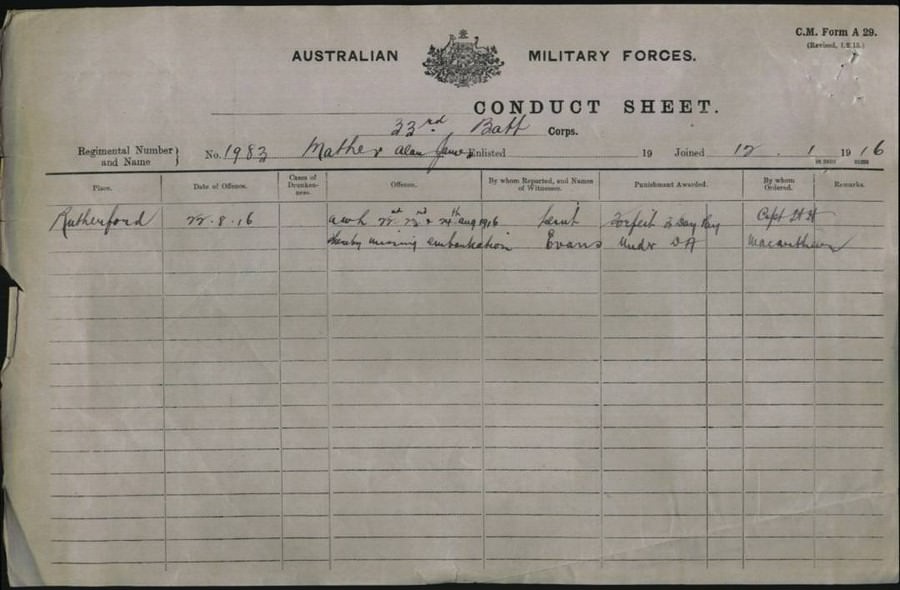 C.M. Form A 29.
(Revised, 1.2.15.)
AUSTRALIAN MILITARY FORCES.
CONDUCT SHEET.
33rd Batt Corps.
Regimental Number and Name } No. 1983 Mather Alan James Enlisted 19 Joined 12 . 1 19 16
Place. Date of Offence. Cases of Drunkenness. Offence. By whom Reported, and Names of Witnesses. Punishment Awarded. By whom Ordered. Remarks.
Rutherford 22.8.16 awl 22nd 23rd & 24th aug 1916 Forfeit 3 Day Pay Capt
thereby missing embarkation Evans Under D A Macarthur